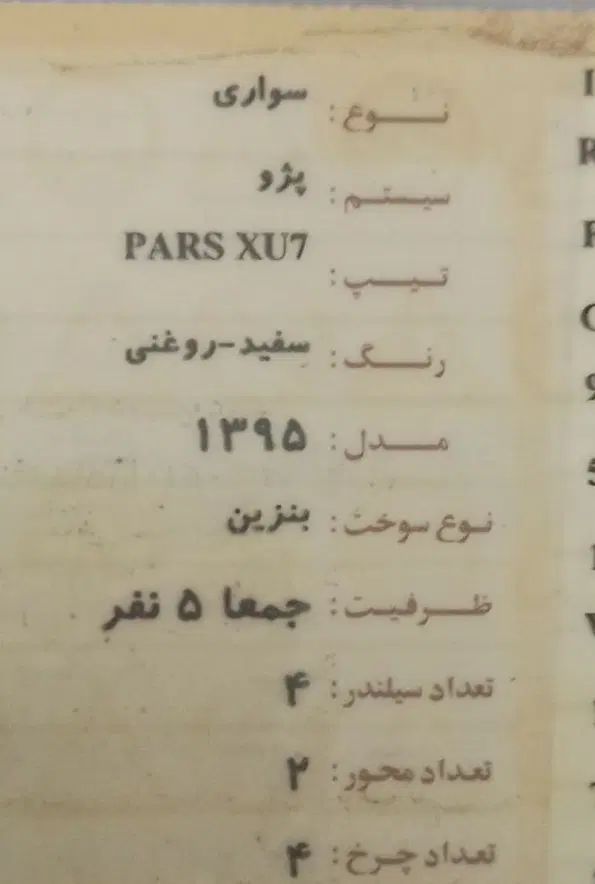 نوع: سواری
سیستم: پژو
تیپ: PARS XU7
رنگ: سفید-روغنی
مدل: ۱۳۹۵
نوع سوخت: بنزین
ظرفیت: جمعا ۵ نفر
تعداد سیلندر: ۴
تعداد محور: ۲
تعداد چرخ: ۴